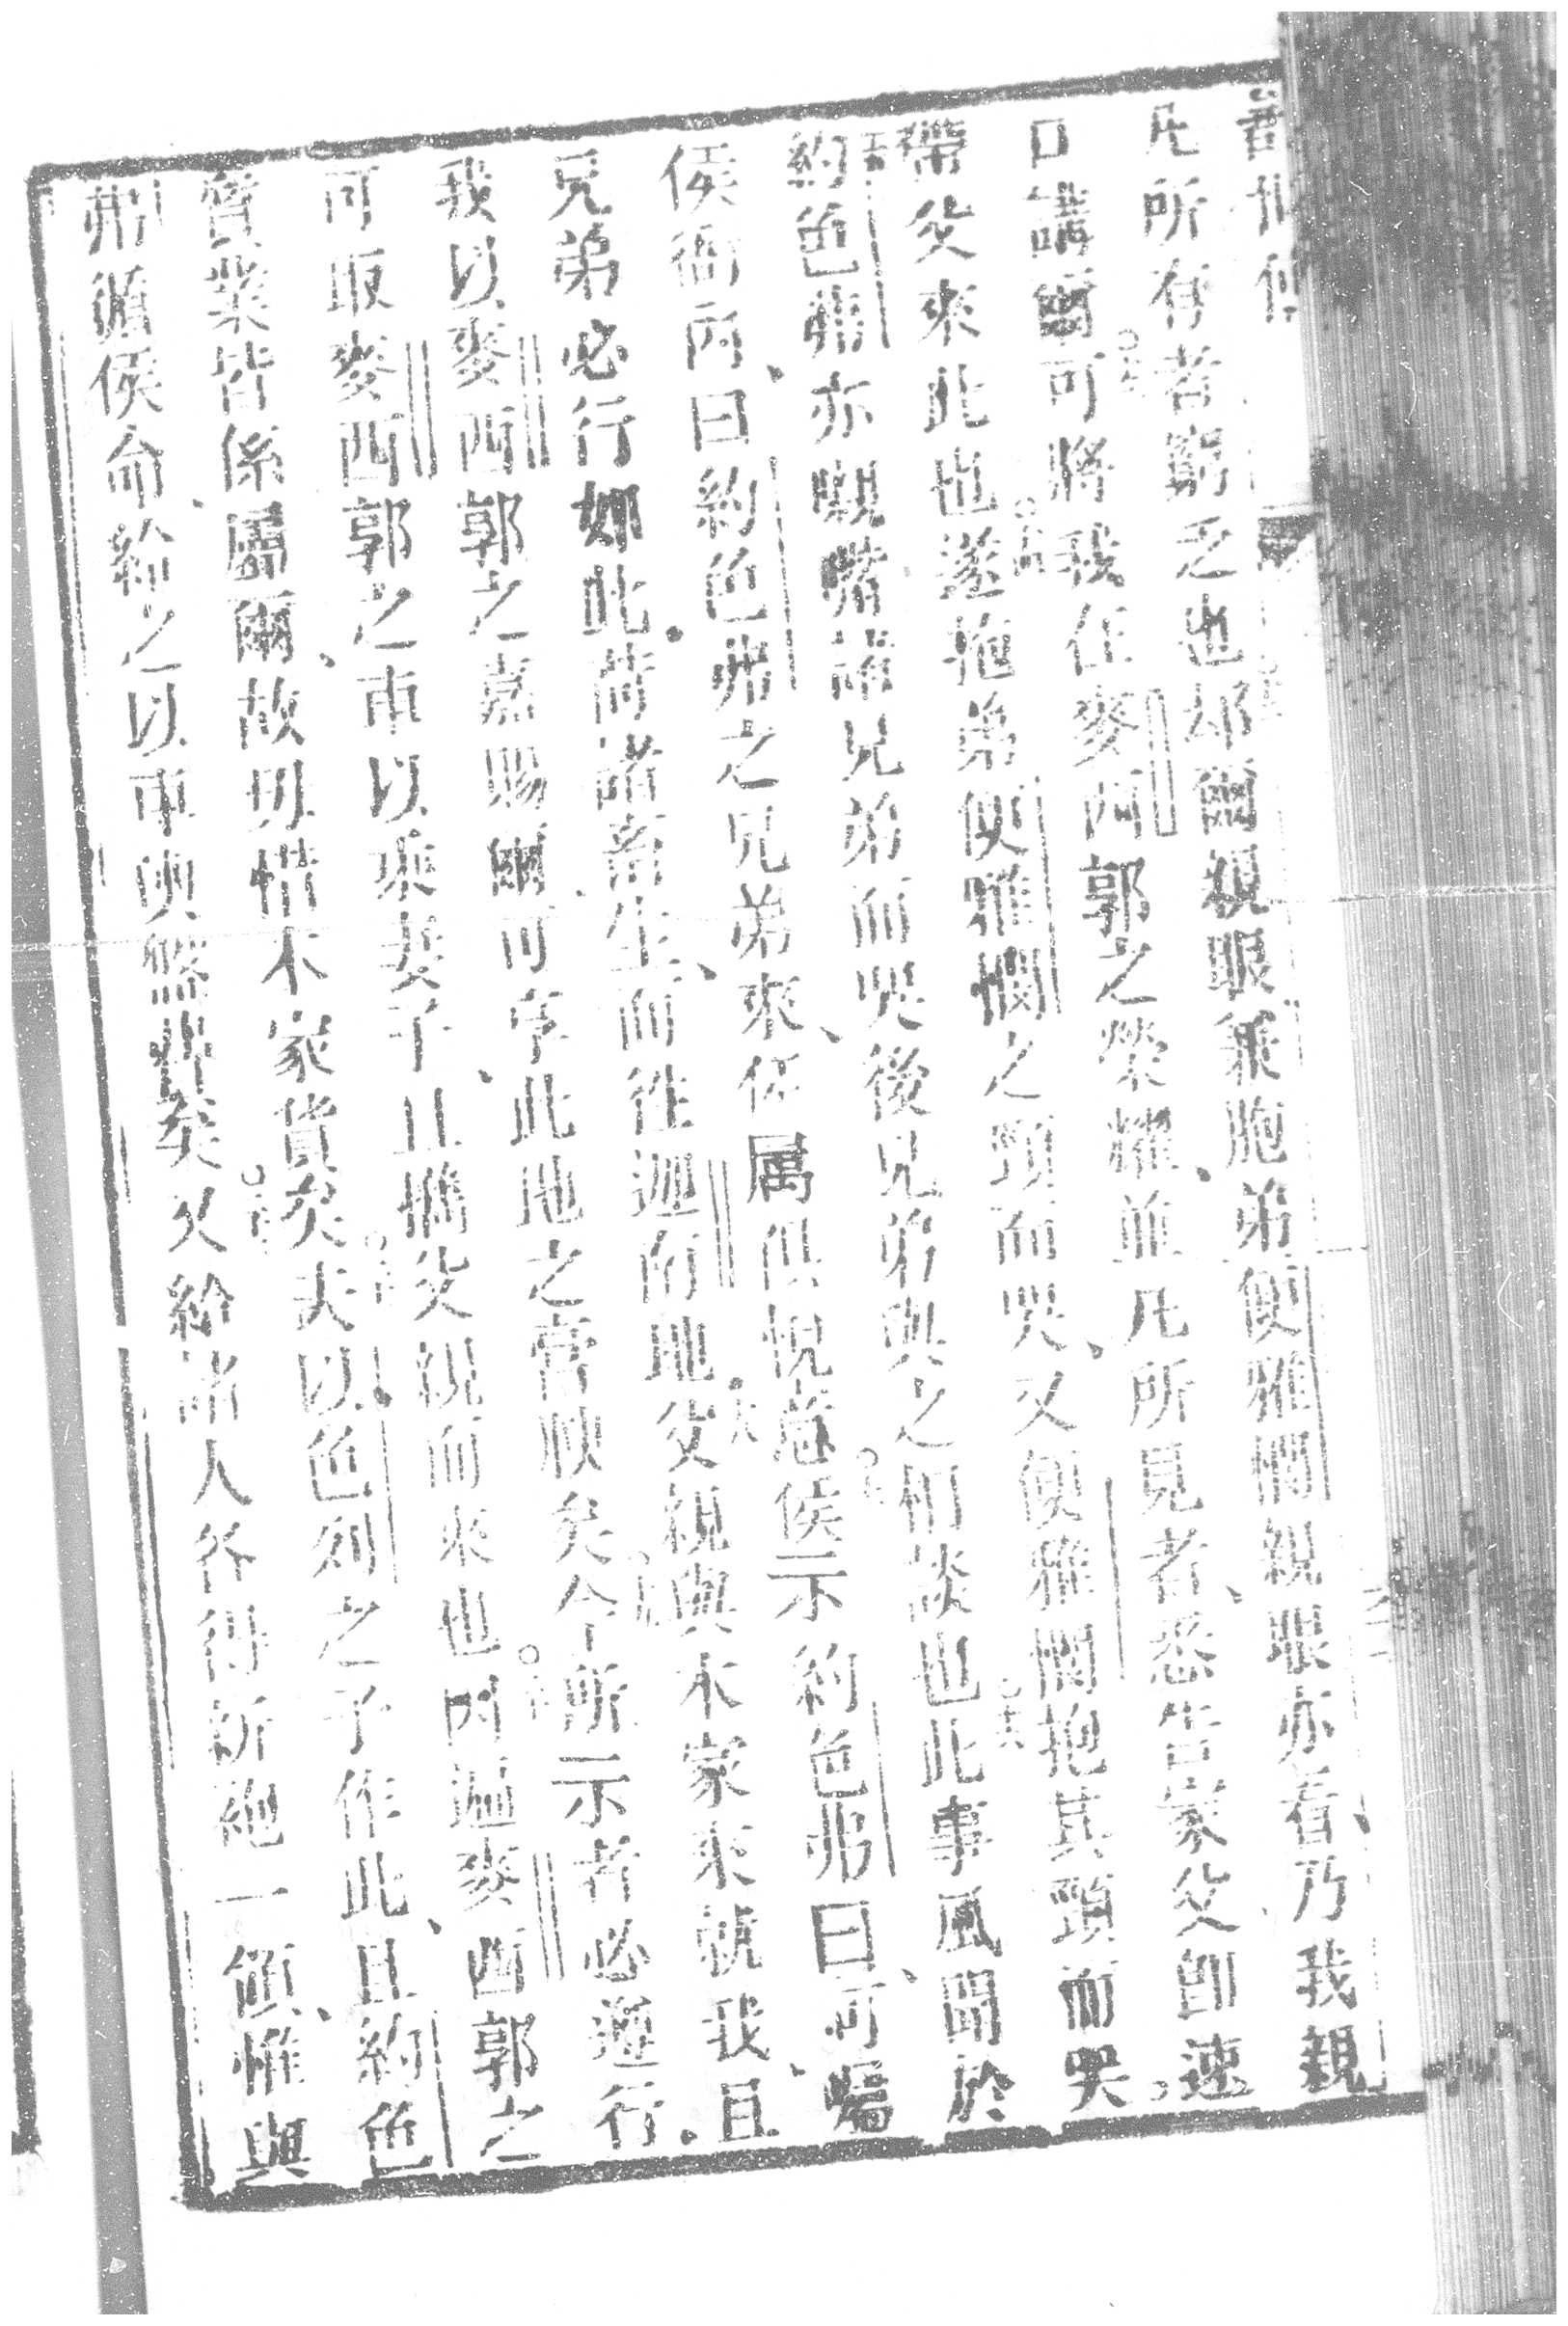 凡所有者窮乏也却爾親眼並胞弟便雅憫親眼亦看乃我親
口講爾可將我在麥西郭之榮耀並凡所見者悉告家父即速
帶父來此也遂抱弟便雅憫之頸而哭又便雅憫抱其頸而哭
約色弗亦親嘴諸兄弟而哭後兄弟與之相談也此事風聞於
侯衙內曰約色弗之兄弟來侯屬俱悅意侯示約色弗曰可囑
兄弟必行如此荷諸畜生而往迦南地父親與本家來就我且
我以麥西郭之嘉賜爾可享此地之膏腴矣今所示者必遵行
可取麥西郭之車以乘妻子且攜父親而來也因遍麥西郭之
貨業皆係屬爾故毋惜本家貨矣夫以色列之子作此且約色
弗循侯命給之以車與盤費矣又給諸人各得新袍一領惟與